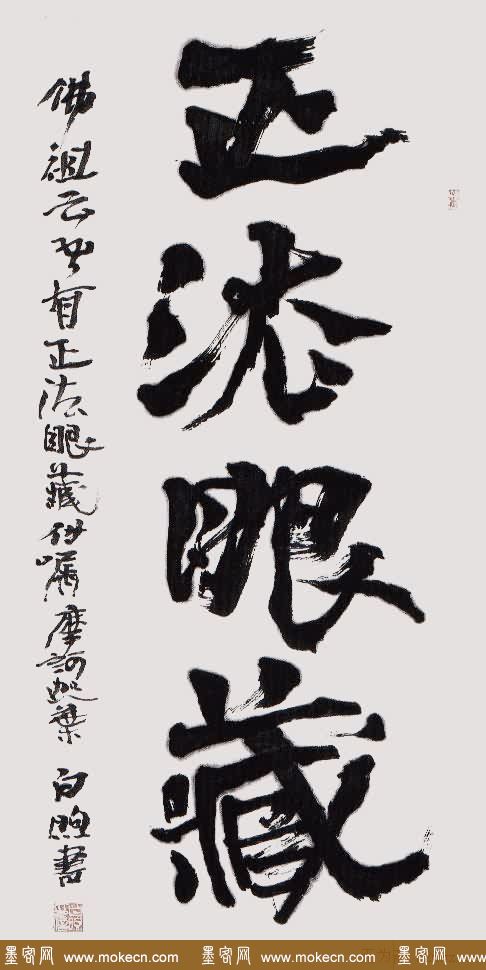 正法眼藏
佛祖云吾有正法眼藏付嘱摩訶迦葉 白煦書
墨客网 www.mokecn.com 墨客网 www.mokecn.com 墨客网 www.mokecn.com